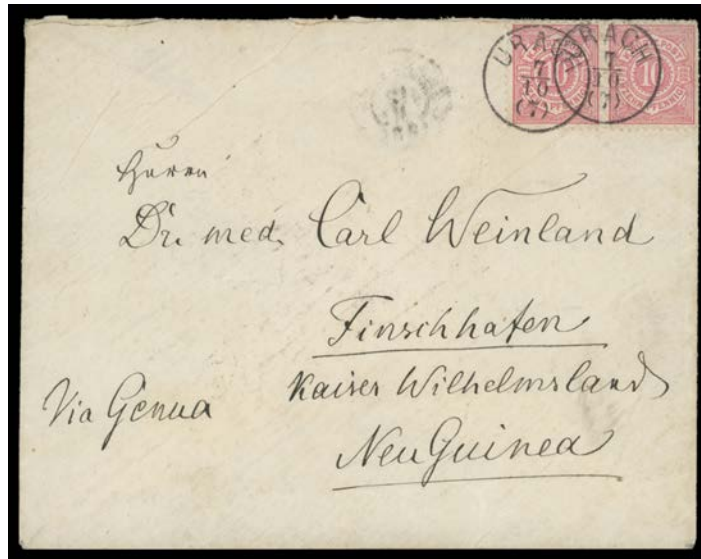 URACH
7
10
(7)
URACH
7
10
(7)
10
10
Herrn
Dr. med. Carl Weinland
Finschhafen
Kaiser Wilhelmsland
Via Genua
Neu Guinea